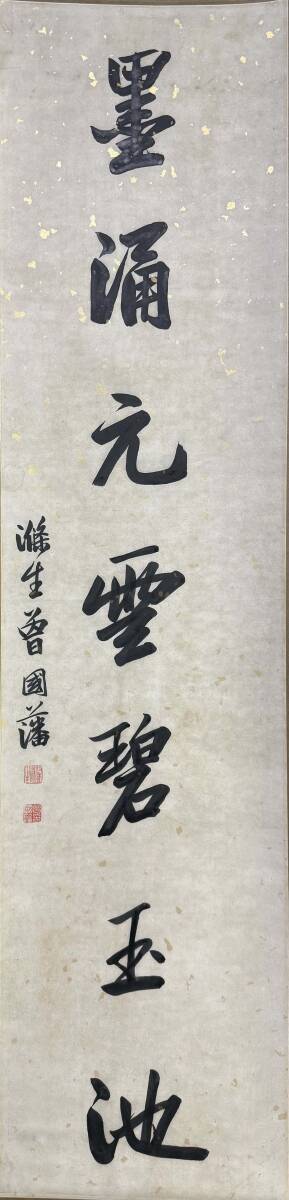 墨涌元雲碧玉池
滌生曾國藩